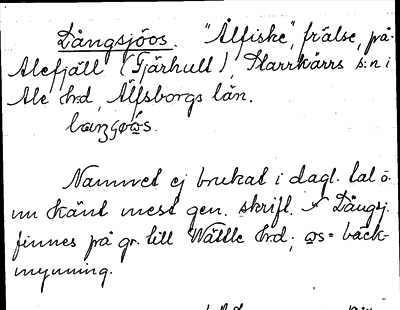 Långsjöos. "Ålfiske", frälse, på
Alefjäll (Tjärhult), Starrkärrs s:n i
Ale hrd, Älfsborgs län.
Namnet ej brukat i dagl. tal o.
nu känt mest gen. skriftl. Långsj.
finnes på gr. till Wättle hrd; os = bäck-
mynning.